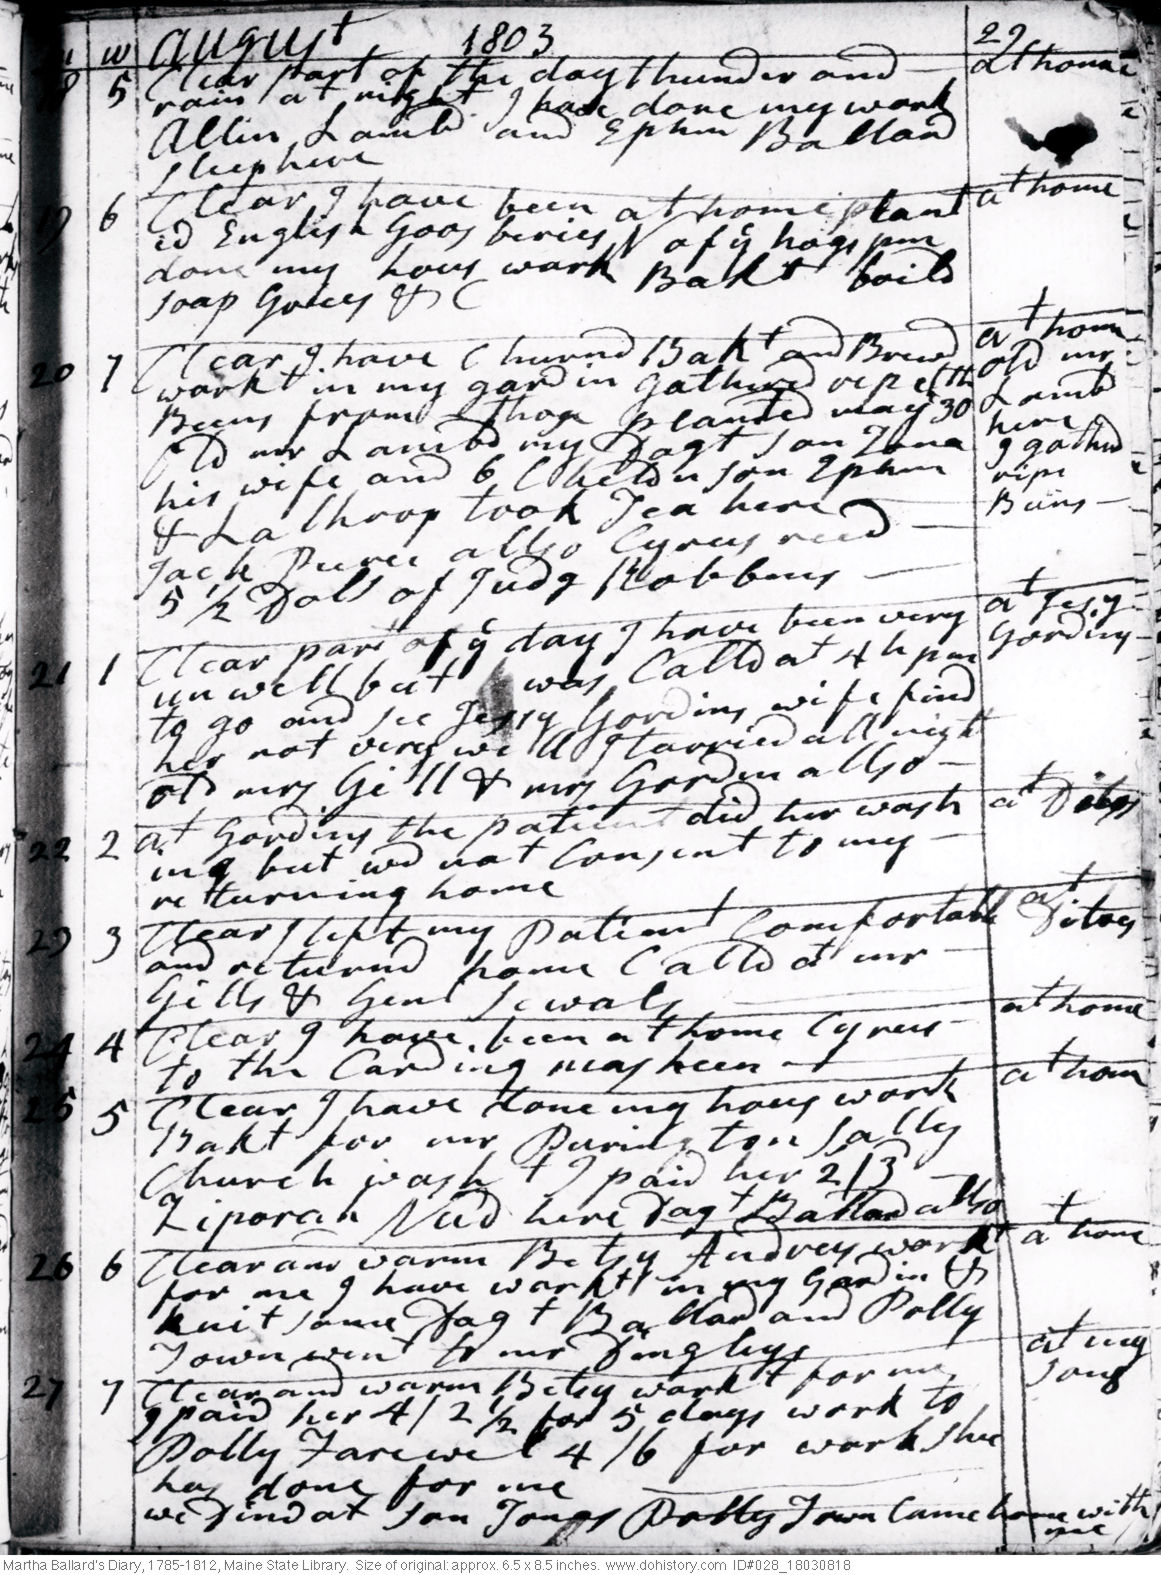 w August 1803 29
18 5 Clear part of the day thunder and at home
rain at night. I have done my work
Allin Lambd and Ephm Ballard
sleep here
19 6 Clear I have been at home plant at home
ed English Goos beries of ÿ hogs pen
done my hous work Bakt boild
soap &C
20 7 Clear I have Churnd Bakt and Brewd at home
workt in my gardin gathered ripe old mr
Beens from those planted may 30 Lambd
Old mr Lambd my Dagt son Jona here
his wife and 6 Childn son Ephm I gathrd
& Lathrop took Tea here ripe
Jack allso Cyrus reed Beens
5 1/2 Doll of Judg Robbins
21 1 Clear part of ÿ day I have been very at Jesy
unwell but was Calld at 4 h pm Gordins
to go and see Jessy Gordins wife find
her not very well I tarried all night
old mrs Gill & mrs Gordin allso
22 2 at Gordins the patient did her wash at Ditos
ing but wd not Consent to my
returning home
23 3 Clear I left my Patient Comfortable at Ditos
and returnd home Calld at mr
Gills & Genl Sewals
24 4 Clear I have been at home Cyrus at home
to the Carding masheen
25 5 Clear I have done my hous work at home
Bakt for mr Purington Sally
Church washt I paid her 2/3
Ziporah Need here Dagt Ballard allso
26 6 Clear and warm Betsy Andrews workt at home
for me I have workt in my Gardin &
knit some Dagt Ballard and Polly
Town went to mr Dinglys
27 7 Clear and warm Betsy workt for me at my
I paid her 4/2 1/2 for 5 days work to sons
Polly Farewel 4/6 for work shee
has done for me
we dind at son Jonas Polly Town Came home with
me
Martha Ballard's Diary, 1785-1812, Maine State Library. Size of original: approx. 6.5 x 8.5 inches. www.dohistory.com ID#028_18030818